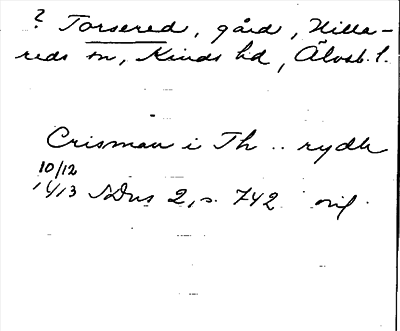 ? Torsered, gård, Hille-
reds sn, Kinds hd, Älvsb. l.
Crisman i Th .. rydh
10/12
1413 SDns 2, s. 742 orig.